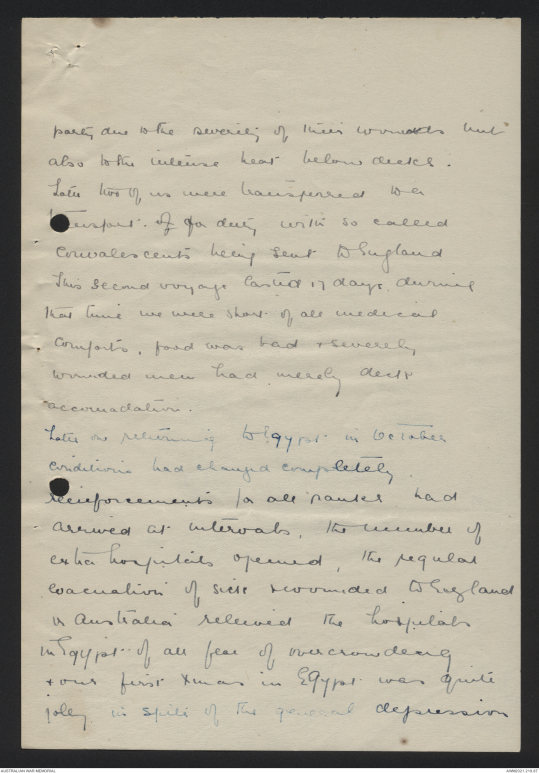 party due to the severity of their wounds but
also to the intense heat below decks.
Later two of us were transferred to a
transport. for duty with so called
convalescents being sent to England
This second voyage lasted 17 days. during
that time we were short of all medical
comforts, food was bad & severely
wounded men had merely deck
accomadation.
Later on returning to Egypt in October
conditions had changed completely.
Reinforcements for all ranks had
arrived at intervals, the number of
extra hospitals opened, the regular
evacuation of sick & wounded to England
or Australia relieved the hospitals
in Egypt of all fear of overcrowding
& our first Xmas in Egypt was quite
jolly in spite of the general depression
AUSTRALIAN WAR MEMORIAL